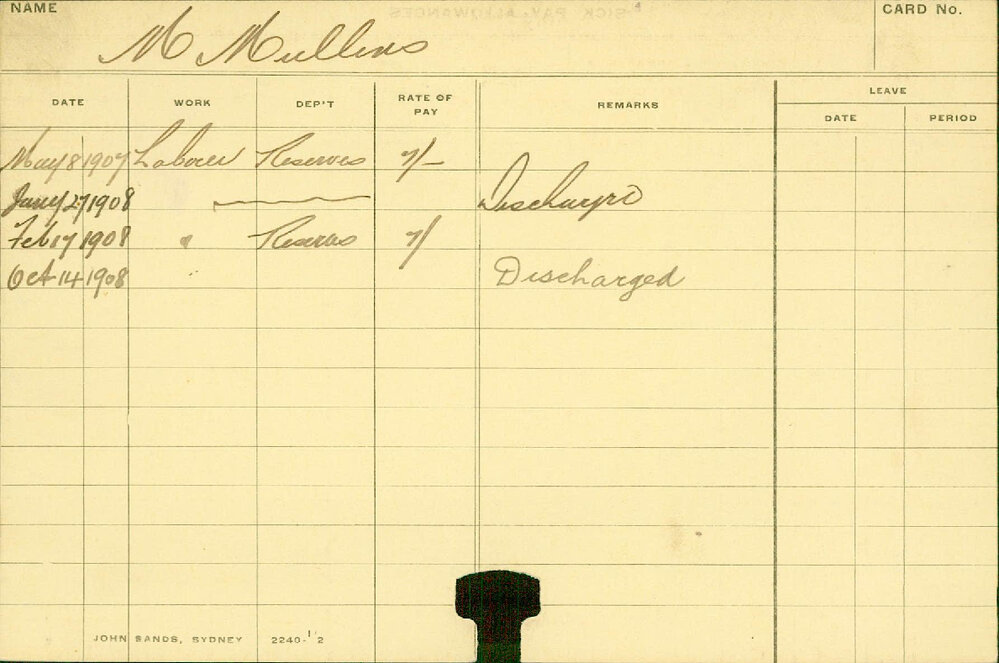 NAME M Mullens CARD No.
DATE WORK DEP'T RATE OF PAY REMARKS LEAVE
DATE PERIOD
May 8 1907 Laborer Reserves 7/-
Jany 27 1908 Discharged
Feb 17 1908 " Reserves 7/
Oct 14 1908 Discharged
JOHN SANDS, SYDNEY 2240-12